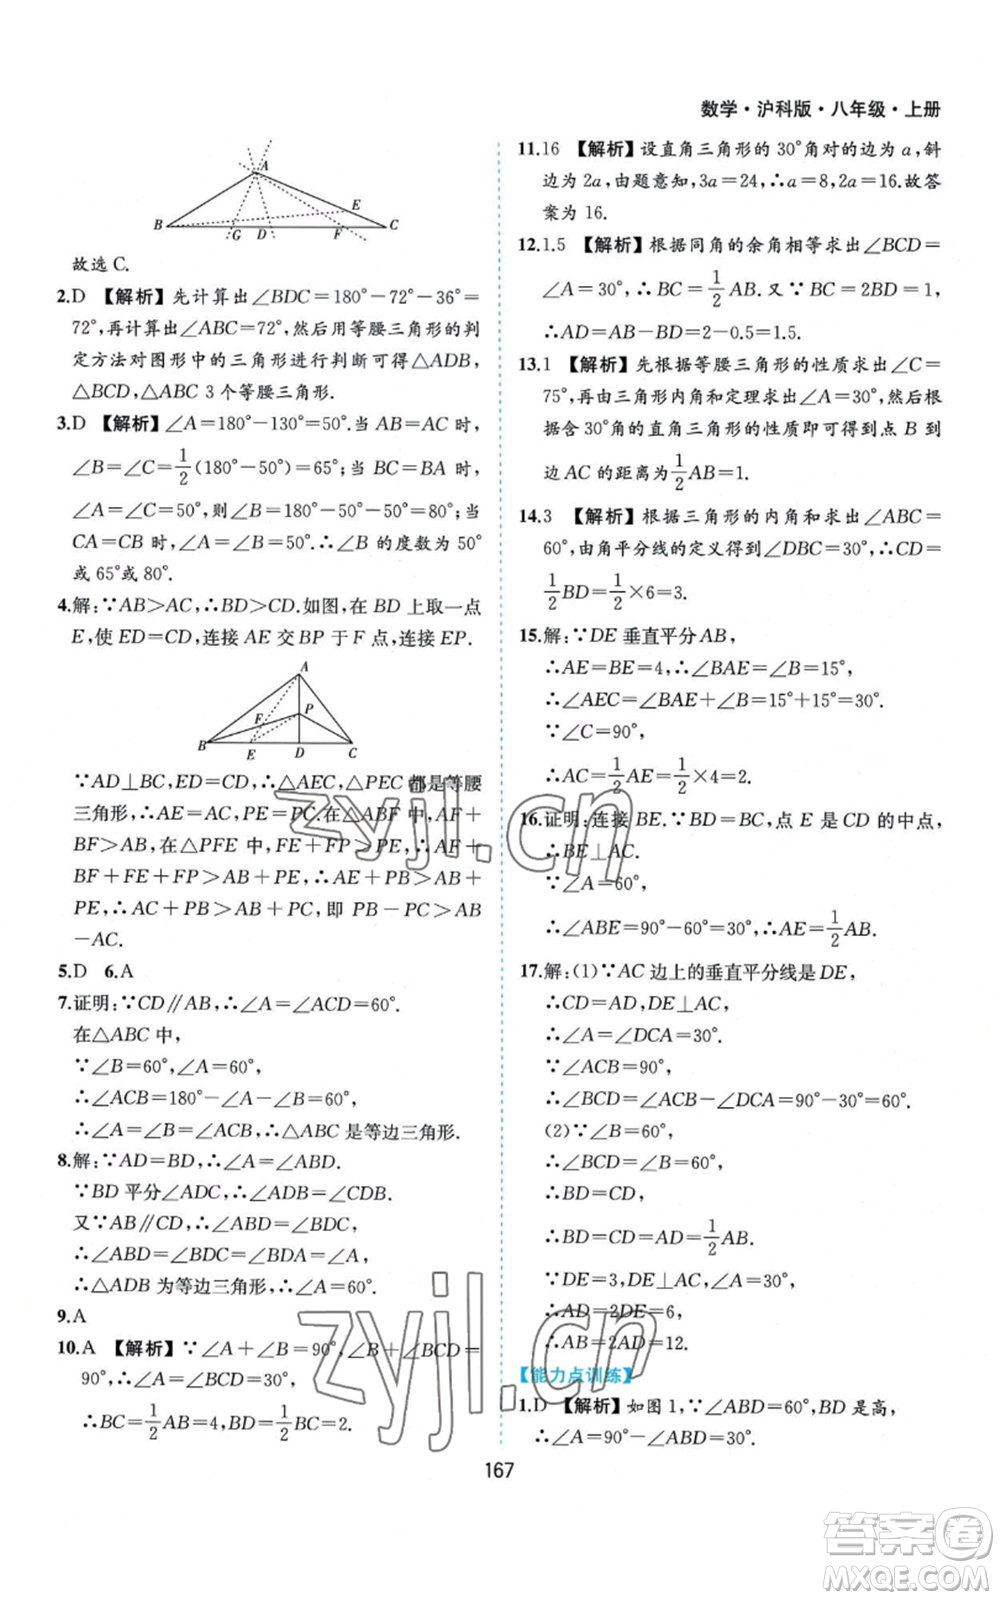 数学·沪科版·八年级·上册
A
B
G
D
F
E
C
故选 C.
2.D 【解析】先计算出∠BDC=180°-72°-36°=
72°,再计算出∠ABC=72°,然后用等腰三角形的判
定方法对图形中的三角形进行判断可得△ADB,
△BCD,△ABC 3 个等腰三角形.
3.D 【解析】∠A=180°-130°=50°.当 AB=AC 时,
∠B=∠C=1/2(180°-50°)=65°;当 BC=BA 时,
∠A=∠C=50°,则∠B=180°-50°-50°=80°;当
CA=CB 时,∠A=∠B=50°.∴∠B 的度数为 50°
或 65°或 80°.
4.解:∵AB>AC,∴BD>CD.如图,在 BD 上取一点
E,使 ED=CD,连接 AE 交 BP 于 F 点,连接 EP.
A
F
P
B
E
D
C
∵AD⊥BC,ED=CD,∴△AEC,△PEC 都是等腰
三角形,∴AE=AC,PE=PC.在△ABF 中,AF+
BF>AB,在△PFE 中,EF+FP>PE,∴AF+
BF+FE+FP>AB+PE,∴AE+PB>AB+
PE,∴AC+PB>AB+PC,即 PB-PC>AB
-AC.
5.D 6.A
7.证明:∵CD∥AB,∴∠A=∠ACD=60°.
在△ABC 中,
∵∠B=60°,∠A=60°,
∴∠ACB=180°-∠A-∠B=60°,
∴∠A=∠B=∠ACB,∴△ABC 是等边三角形.
8.解:∵AD=BD,∴∠A=∠ABD.
∵BD 平分∠ADC,∴∠ADB=∠CDB.
又∵AB∥CD,∴∠ABD=∠BDC,
∴∠ABD=∠BDC=∠BDA=∠A,
∴△ADB 为等边三角形,∴∠A=60°.
9.A
10.A 【解析】∵∠A+∠B=90°,∠B+∠BCD=
90°,∴∠A=∠BCD=30°,
∴BC=1/2AB=4,BD=1/2BC=2.
11.16 【解析】设直角三角形的 30°角对的边为 a,斜
边为 2a,由题意知,3a=24,∴a=8,2a=16.故答
案为 16.
12.1.5 【解析】根据同角的余角相等求出∠BCD=
∠A=30°,∴BC=1/2AB.又∵BC=2BD=1,
∴AD=AB-BD=2-0.5=1.5.
13.1 【解析】先根据等腰三角形的性质求出∠C=
75°,再由三角形内角和定理求出∠A=30°,然后根
据含 30°角的直角三角形的性质即可得到点 B 到
边 AC 的距离为1/2AB=1.
14.3 【解析】根据三角形的内角和求出∠ABC=
60°,由角平分线的定义得到∠DBC=30°,∴CD=
1/2BD=1/2×6=3.
15.解:∵DE 垂直平分 AB,
∴AE=BE=4,∴∠BAE=∠B=15°,
∴∠AEC=∠BAE+∠B=15°+15°=30°.
∵∠C=90°,
∴AC=1/2AE=1/2×4=2.
16.证明:连接 BE.∵BD=BC,点 E 是 CD 的中点,
∴BE⊥AC.
∵∠A=60°,
∴∠ABE=90°-60°=30°,∴AE=1/2AB.
17.解:(1)∵AC 边上的垂直平分线是 DE,
∴CD=AD,DE⊥AC,
∴∠A=∠DCA=30°.
∵∠ACB=90°,
∴∠DCB=∠ACB-∠DCA=90°-30°=60°.
(2)∵∠B=60°,
∴∠BCD=∠B=60°,
∴BD=CD,
∴BD=CD=AD=1/2AB.
∵DE=3,DE⊥AC,∠A=30°,
∴AD=2DE=6,
∴AB=2AD=12.
【能力点训练】
1.D 【解析】如图 1,∵∠ABD=60°,BD 是高,
∴∠A=90°-∠ABD=30°.
167
zyjl.cn
zyjl.cn
答案卷
MXQE.COM